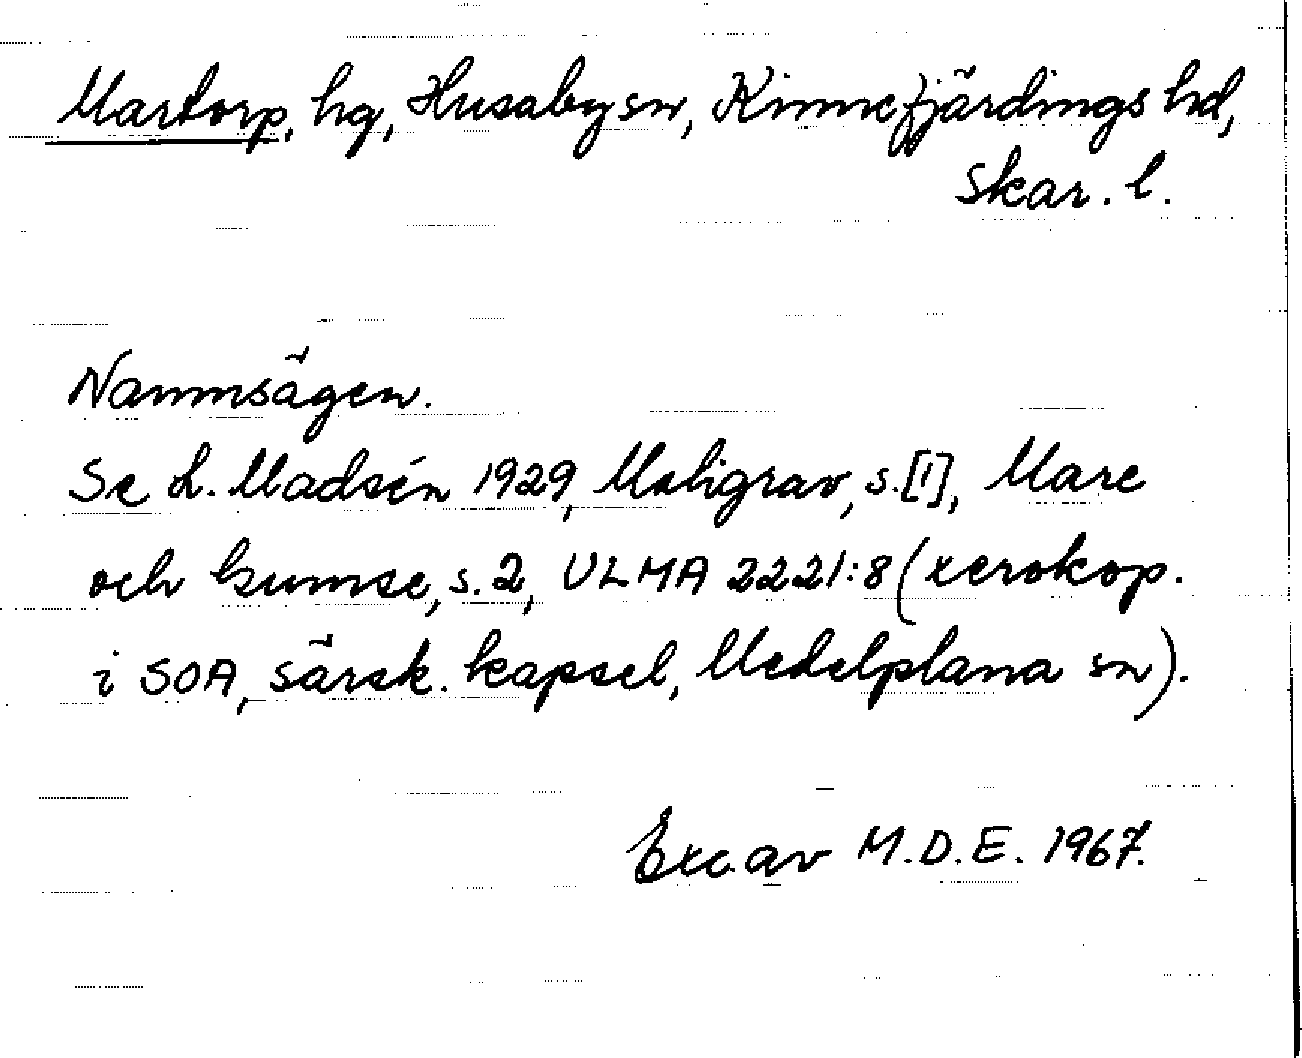 Martorp, hg, Husaby sn, Kinnefjärdings hd,
Skar. l.
Namnsägen.
Se L. Madsén 1929, Maligrav, s. [1], Mare
och Gumse, s. 2, ULMA 2221:8 (xerokop.
i SOA, särsk. kapsel, Medelplana sn).
Exc. av M.D.E. 1967.